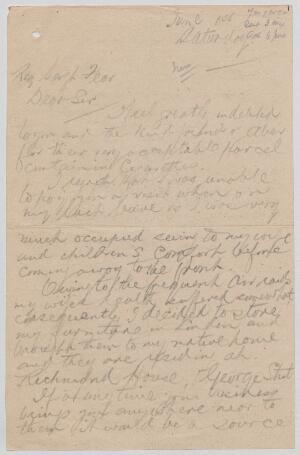 June
Saturday
Dear Sir
I feel greatly indebted
to you and the kind friends at
for the very acceptable parcel
containing Cigarettes.
I regret that I was unable
to pay you a visit when on
my last leave as I was very
much occupied seeing to my wife
and children's Comfort before
coming away to the front.
Owing to the frequent Air raids
my wife's health suffered somewhat
Consequently, I decided to store
my furniture in London, and
moved them to my native home
and they are resid in at
Richmond House, George Street
If at any time your business
brings you anywhere near to
them it would be a source